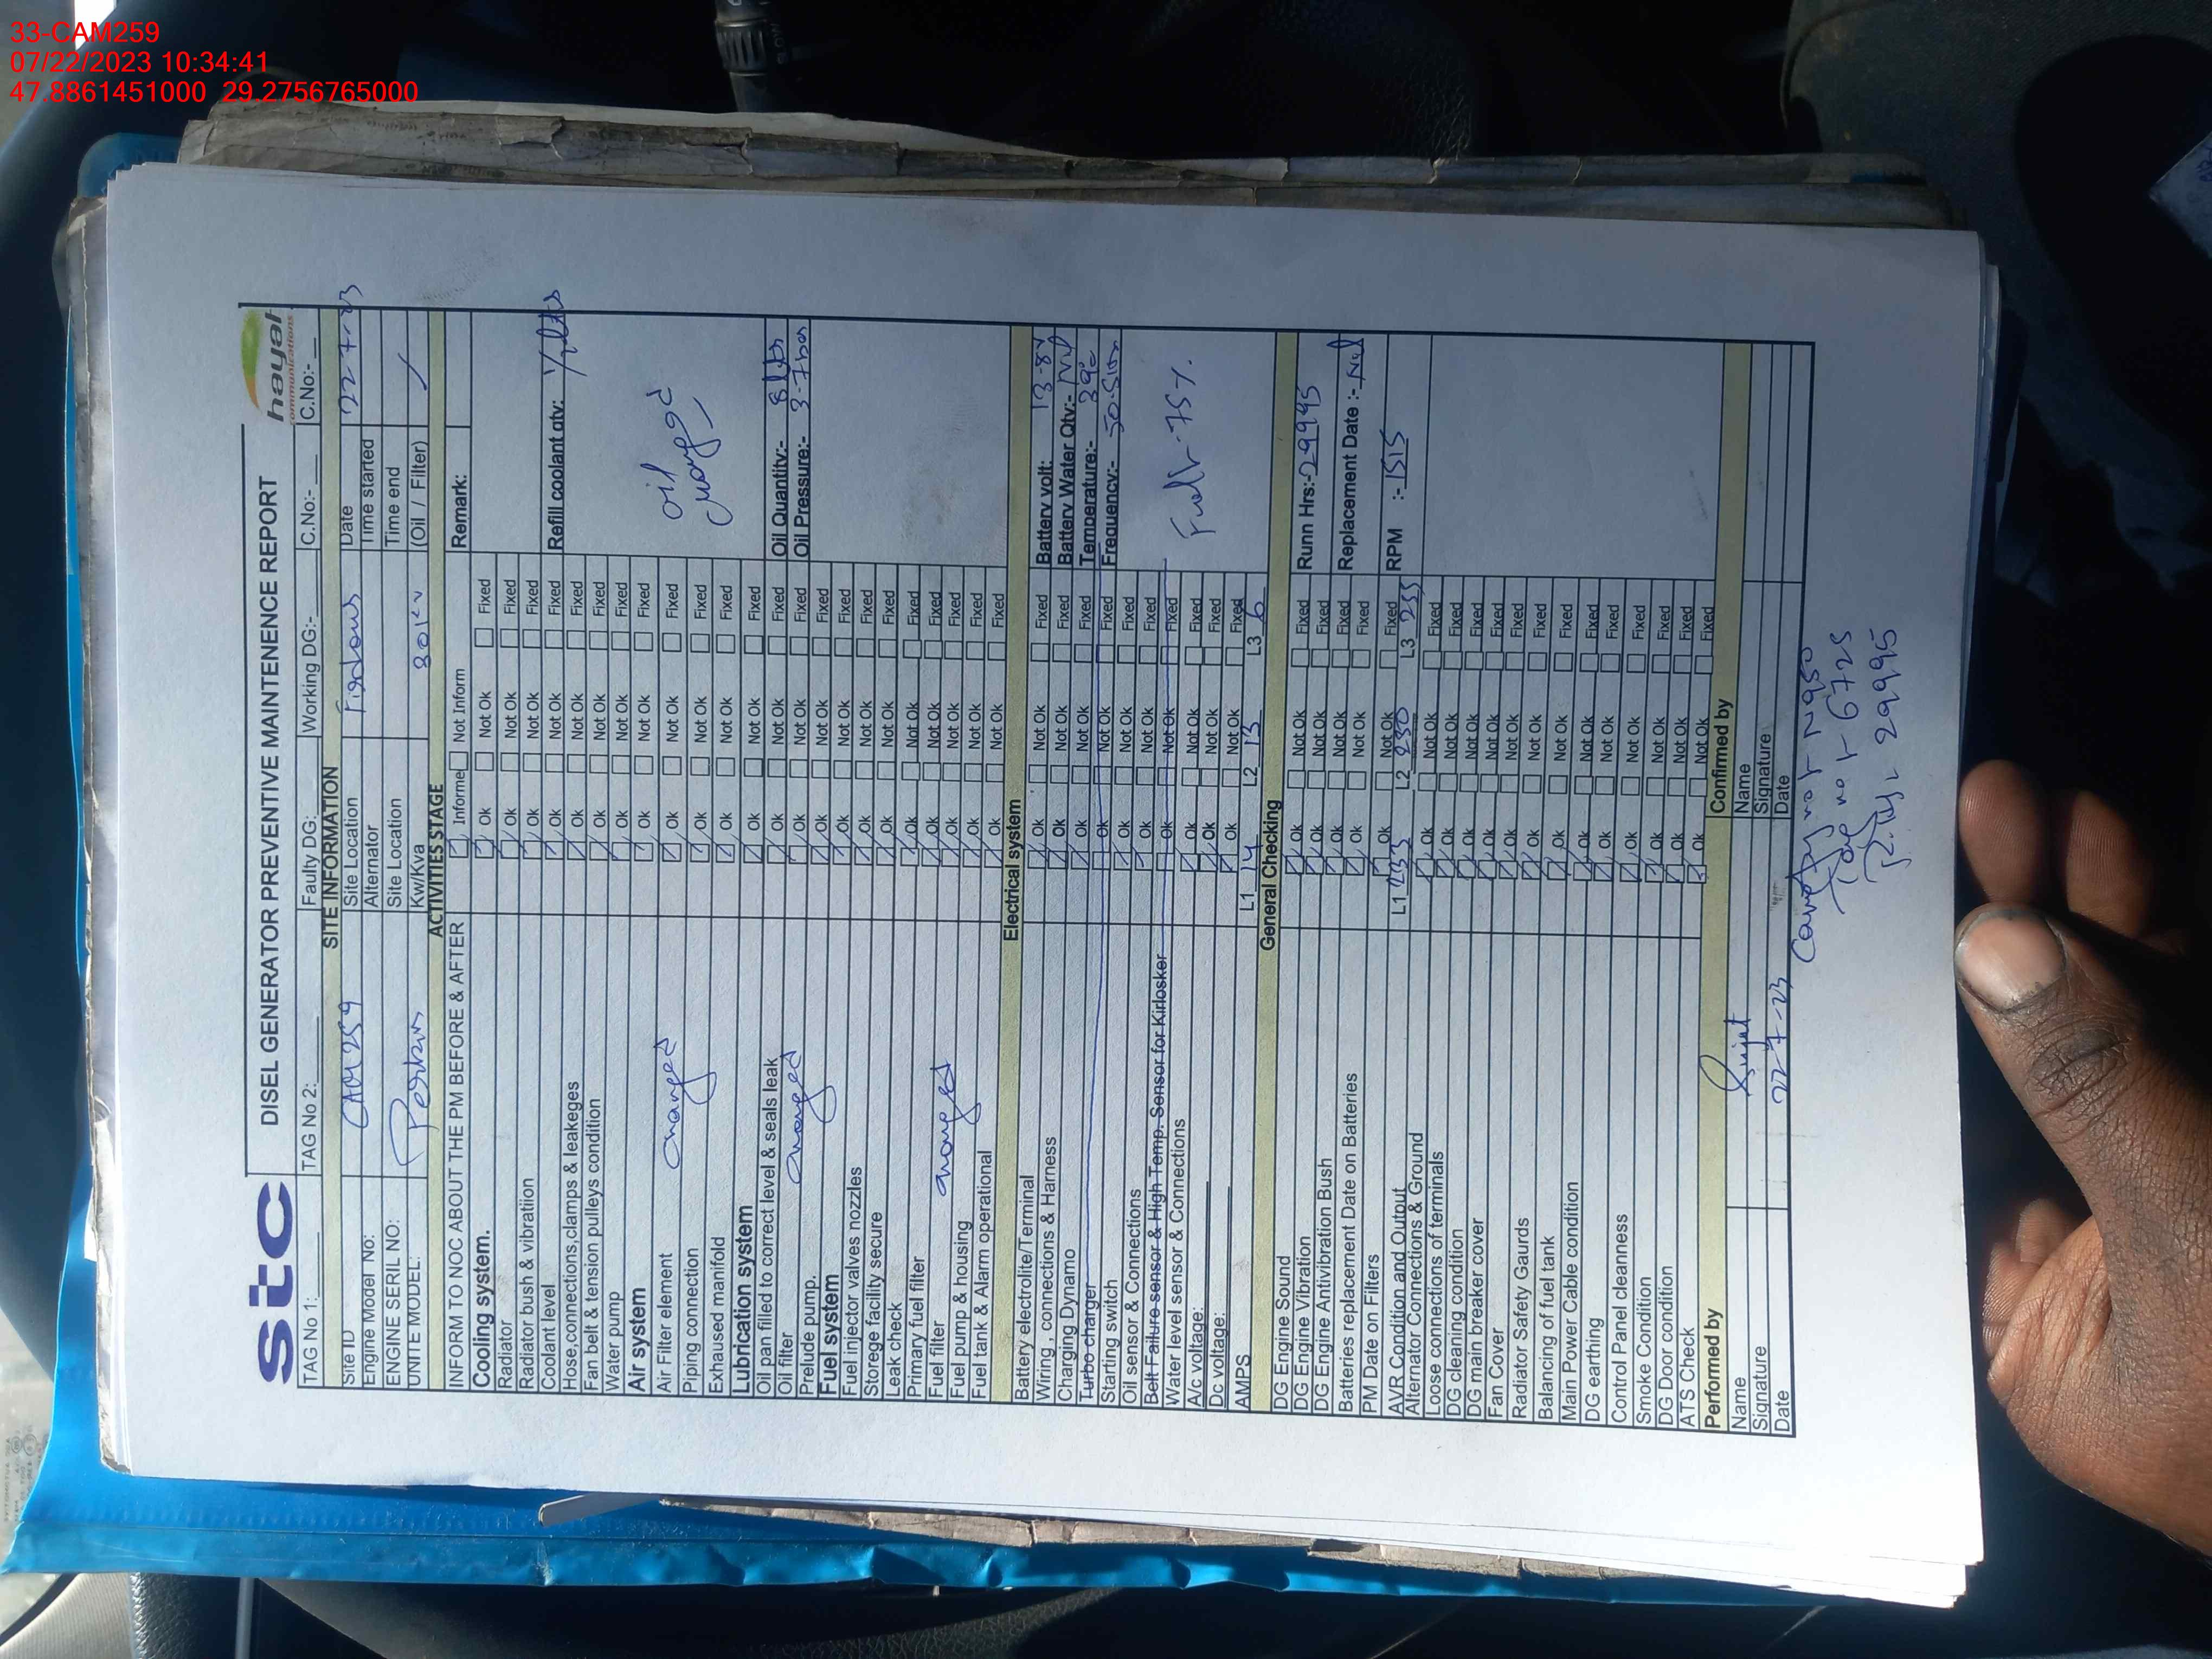 33-CAM259
07/22/2023 10:34:41
47.8861451000 29.2756765000
stc
DISEL GENERATOR PREVENTIVE MAINTENENCE REPORT
hayat
ommunications
TAG No 1: TAG No 2: Faulty DG: Working DG:- C.No:- C.No:-
SITE INFORMATION
Site ID CAM 259 Site Location Firdous Date 22-7-23
Engine Model No: Alternator Time started
ENGINE SERIL NO: Site Location Time end
UNITE MODEL: Perkins Kw/Kva 80kv (Oil / Filter)
ACTIVITIES STAGE
INFORM TO NOC ABOUT THE PM BEFORE & AFTER Informe Not Inform Remark:
Cooling system. Ok Not Ok Fixed
Radiator Ok Not Ok Fixed
Radiator bush & vibratiion Ok Not Ok Fixed
Coolant level Ok Not Ok Fixed Refill coolant qty: 1/2 lts
Hose,connections,clamps & leakeges Ok Not Ok Fixed
Fan belt & tension pulleys condition Ok Not Ok Fixed
Water pump Ok Not Ok Fixed
Air system Ok Not Ok Fixed
Air Filter element changed Ok Not Ok Fixed oil changed
Piping connection Ok Not Ok Fixed
Exhaused manifold Ok Not Ok Fixed
Lubrication system Ok Not Ok Fixed
Oil pan filled to correct level & seals leak Ok Not Ok Fixed Oil Quantity:- 8 lts
Oil filter changed Ok Not Ok Fixed Oil Pressure:- 3-7 bar
Prelude pump. Ok Not Ok Fixed
Fuel system Ok Not Ok Fixed
Fuel injector valves nozzles Ok Not Ok Fixed
Storege facility secure Ok Not Ok Fixed
Leak check Ok Not Ok Fixed
Primary fuel filter Ok Not Ok Fixed
Fuel filter changed Ok Not Ok Fixed
Fuel pump & housing Ok Not Ok Fixed
Fuel tank & Alarm operational Ok Not Ok Fixed
Electrical system
Battery electrolite/Terminal Ok Not Ok Fixed Battery volt: 13-8v
Wiring , connections & Harness Ok Not Ok Fixed Battery Water Qty:- Nil
Charging Dynamo Ok Not Ok Fixed Temperature:- 39c
Turbo charger Ok Not Ok Fixed Frequency:-
Starting switch Ok Not Ok Fixed
Oil sensor & Connections Ok Not Ok Fixed
Belt Failure sensor & High Temp. Sensor for Kirlosker Ok Not Ok Fixed
Water level sensor & Connections Ok Not Ok Fixed
A/c voltage: Ok Not Ok Fixed
Dc voltage: Ok Not Ok Fixed
AMPS L1 14 L2 13 L3 6
75%
General Checking
DG Engine Sound Ok Not Ok Fixed Runn Hrs:- 29995
DG Engine Vibration Ok Not Ok Fixed
DG Engine Antivibration Bush Ok Not Ok Fixed
Batteries replacement Date on Batteries Ok Not Ok Fixed Replacement Date :- Nil
PM Date on Filters Ok Not Ok Fixed
AVR Condition and Output L1 233 L2 230 L3 235 RPM :- 1515
Alternator Connections & Ground Ok Not Ok Fixed
Loose connections of terminals Ok Not Ok Fixed
DG cleaning condition Ok Not Ok Fixed
DG main breaker cover Ok Not Ok Fixed
Fan Cover Ok Not Ok Fixed
Radiator Safety Gaurds Ok Not Ok Fixed
Balancing of fuel tank Ok Not Ok Fixed
Main Power Cable condition Ok Not Ok Fixed
DG earthing Ok Not Ok Fixed
Control Panel cleanness Ok Not Ok Fixed
Smoke Condition Ok Not Ok Fixed
DG Door condition Ok Not Ok Fixed
ATS Check Ok Not Ok Fixed
Performed by Confirmed by
Name Name
Signature Signature
Date 22-7-23 Date
N950
6725
29995